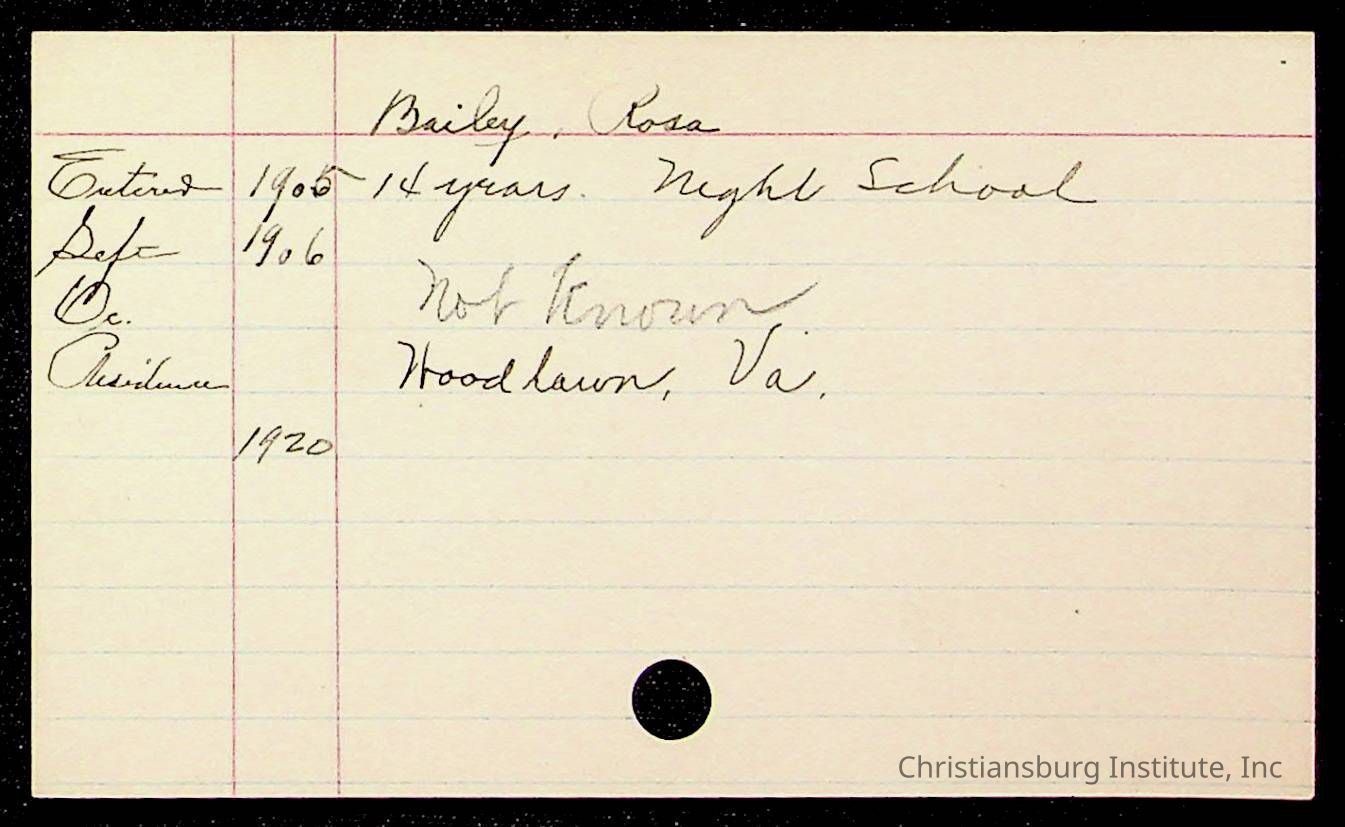 Bailey, Rosa
Entered 1905 14 years. Night School
Left 1906
Oc. Not Known
Residence Woodlawn, Va.
1920
Christiansburg Institute, Inc